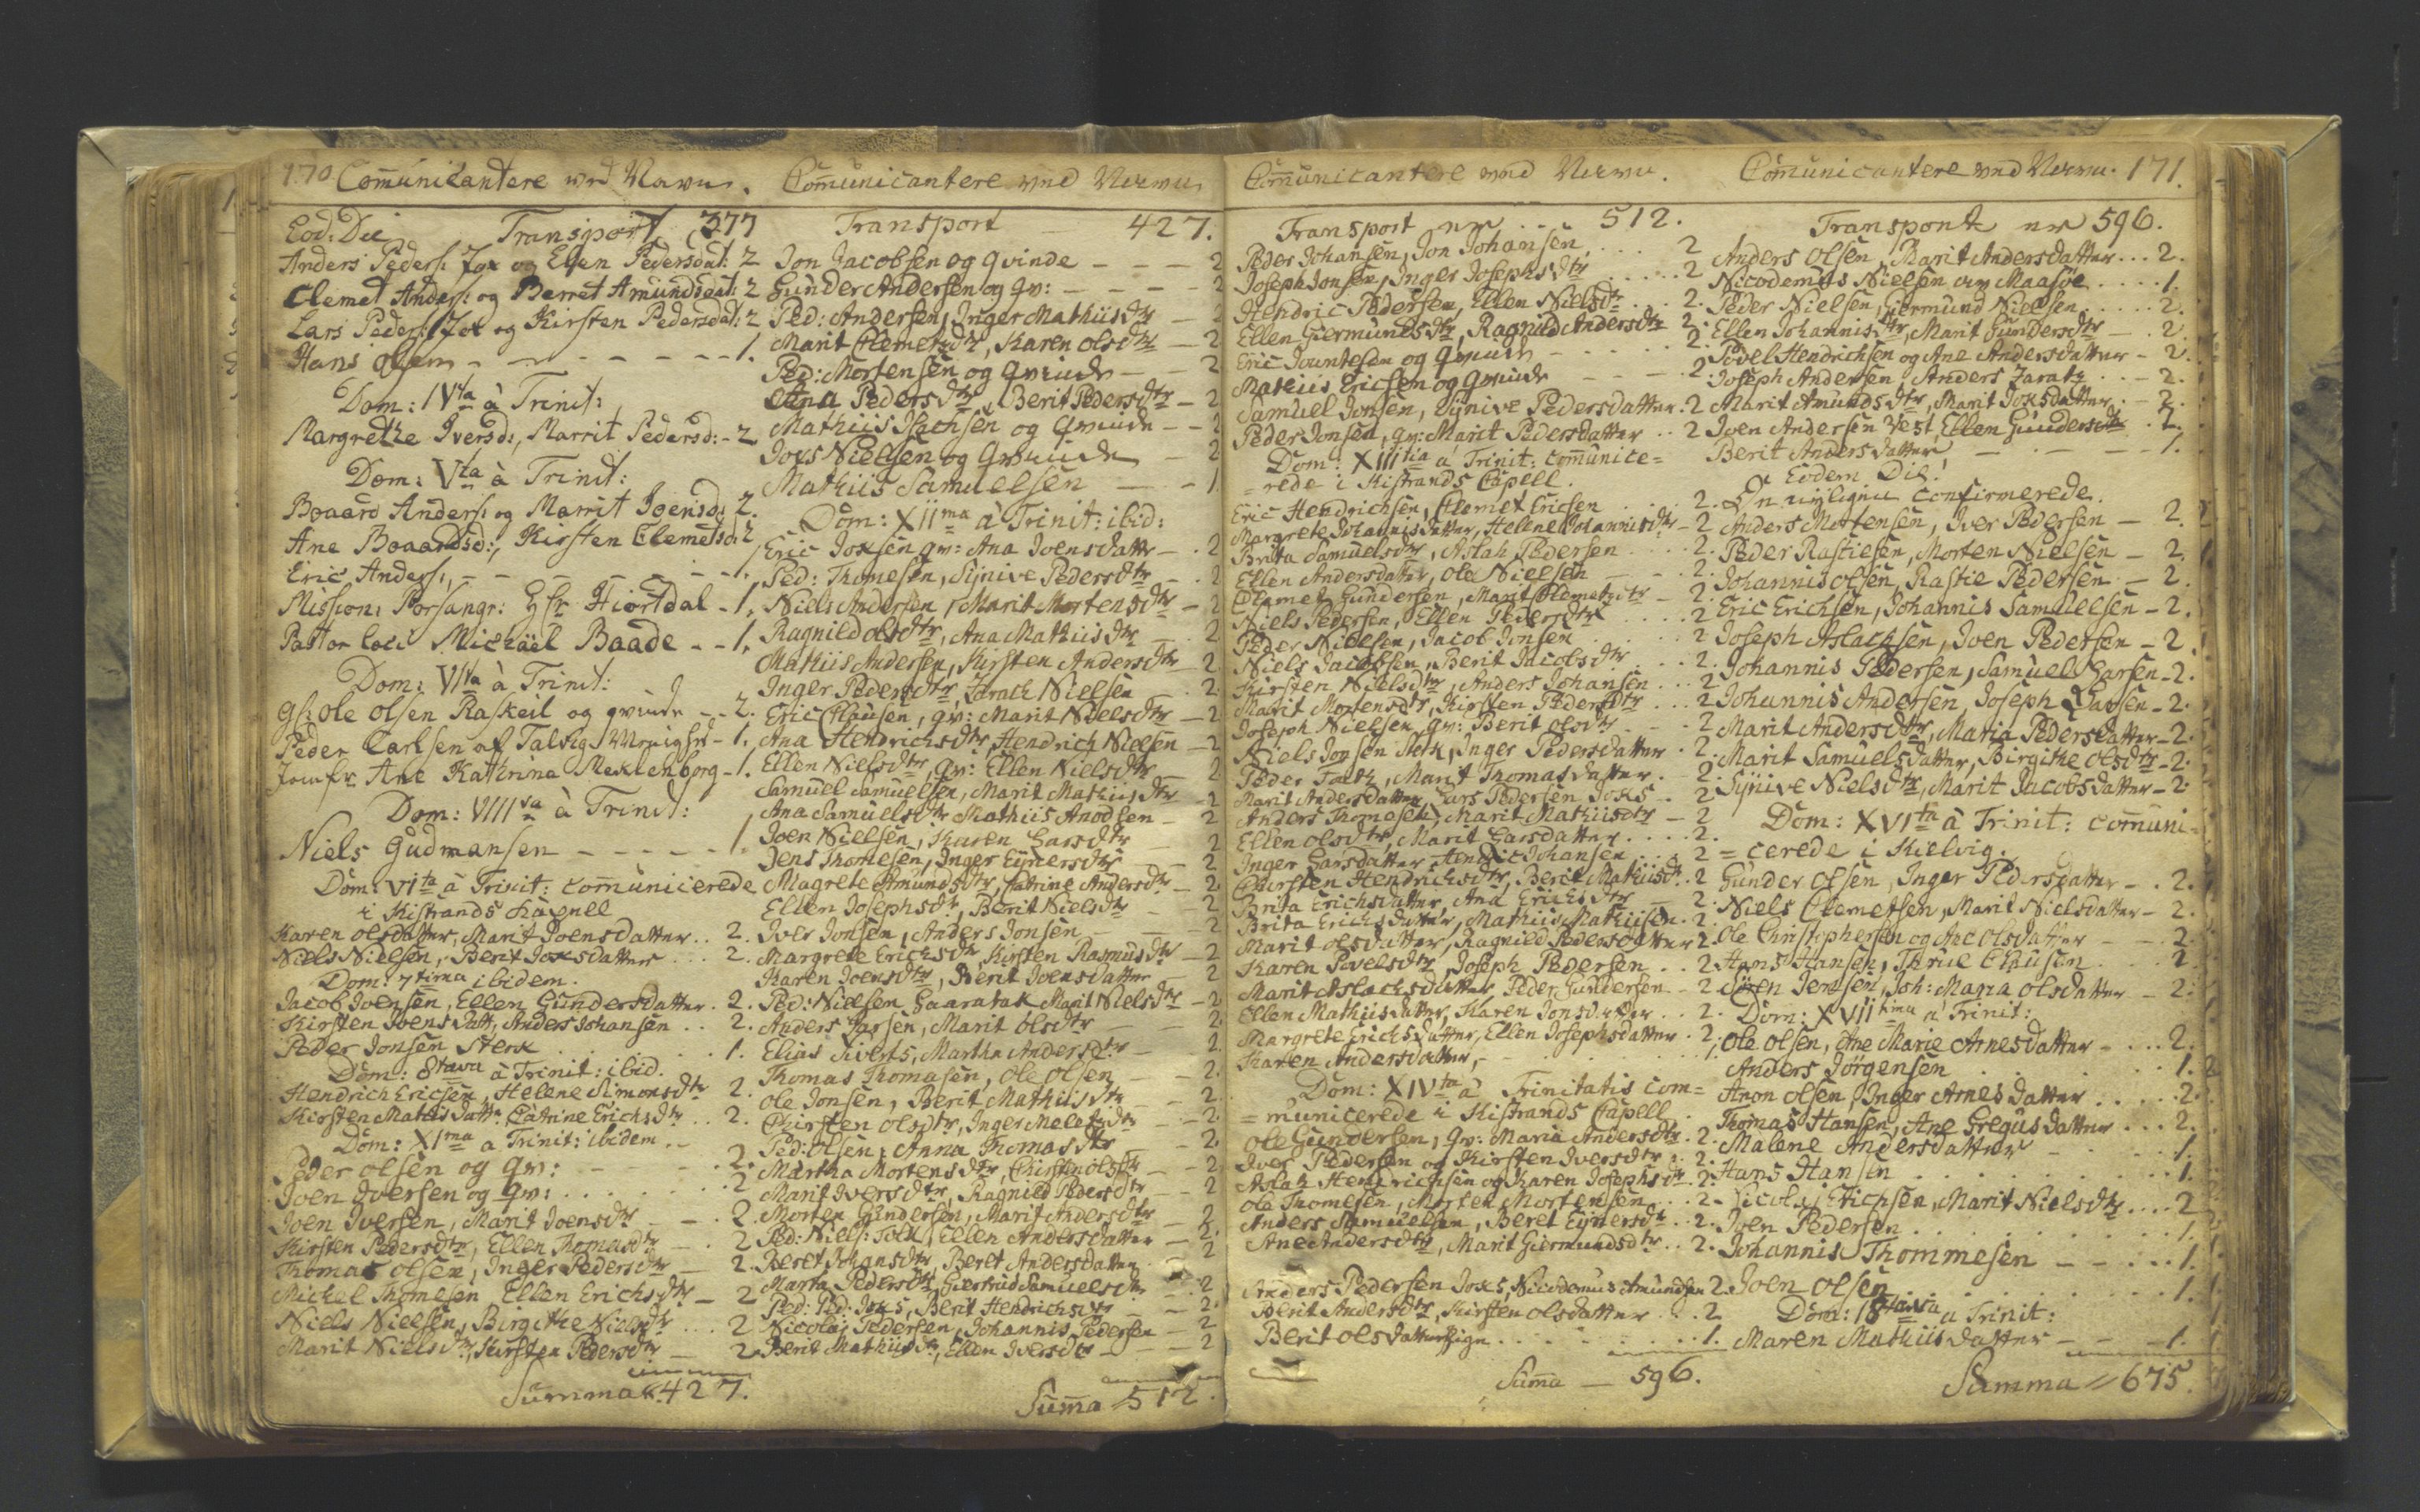 170 Com̄unicantere ved Navn.
Eod: Die Transport 377
Anders Peders: Jox og Ellen Pedersdat: 2
Clemet Anders: og Berret Amundsdat: 2
Lars Peders: Jox og Kirsten Pedersdat: 2
Hans Olsen - - - - - - 1.
Dom: IVta à Trinit:
Margrethe Iversd:, Marrit Pedersd: - 2
Dom: Vta à Trinit:
Boaard Anders: og Marrit Joensd: 2.
Ane Boaardsd:, Kirsten Clemetsd: 2
Eric Anders:, - - - - - 1.
Mission: Porsangr: Hr Hiortdal - 1.
Pastor loci Michäel Baade - - 1.
Dom: VIta à Trinit:
Ole Olsen Raskeil og qvinde - - 2.
Peder Carlsen af Talvig - 1.
Jomfr Ane Kathrina Meklenborg - 1.
Dom: VIII va à Trinit:
Niels Gudmansen - - - - - 1.
Dom: VIta à Trinit: com̄unicerede
i Kistrands Capell
Karen Olsdatter, Marit Joensdatter .. 2.
Niels Nielsen, Berit Joxsdatter ... 2.
Dom: 7tima ibidem.
Jacob Joensen, Ellen Gundersdatter . 2.
Kirsten Joensdatt, Anders Johansen .. 2.
Peder Jonsen Sterk . . . . . 1.
Dom: 8tava à Trinit: ibid.
Hendrich Ericsen, Helene Simonsdtr 2.
Kirsten Mathisdattr Catrine Erichsdtr .. 2.
Dom: XIma a Trinit: ibidem ..
Peder Olsen og qv: - - . 2.
Joen Iversen og qv: . . . . . . 2
Joen Iversen, Marit Joensdtr - - . 2.
Kirsten Pedersdtr, Ellen Thomasdtr - . 2
Thomas Olsen, Inger Pedersdtr - 2.
Michel Thomesen, Ellen Erichsdtr - 2
Niels Nielsen, Birgithe Nielsdtr ... 2
Marit Nielsdtr, Kirsten Pedersdtr - 2
Summa 427.
Com̄unicantere ved Navn
Transport 427.
Jon Jacobsen og qvinde - - - 2
Gunder Andersen og qv: - - - - 2
Ped: Andersen, Inger Mathiisdtr - 2
Marit Clemetsdtr, Karen Olsdtr - 2
Ped: Mortensen og qvinde - - 2
Ana Pedersdtr, Berit Pedersdtr - 2
Mathiis Isachsen og qvinde - - 2
Joxs Nielsen og qvinde - 2
Mathiis Samuelsen - - 1
Dom: XIIma à Trinit: ibid:
Eric Joxsen qv: Ana Joensdattr - . 2
Ped: Thomesen, Synive Pedersdtr - . 2
Niels Andersen, Marit Mortensdtr - 2
Ragnild Olsdtr, Ana Mathiisdtr - 2
Mathiis Andersen, Kirsten Andersdtr - 2.
Inger Pedersdtr, Zarach Nielsen . 2.
Eric Clausen, qv: Marit Nielsdtr - 2
Ana Hendrichsdtr, Hendrich Nielsen - 2
Ellen Nielsdtr, qv: Ellen Nielsdtr - 2
Samuel Samuelsen, Marit Mathiisdtr - 2
Ana Samuelsdtr Mathiis Anodsen - 2
Joen Nielsen, Karen Larsdtr - 2
Jens Thomesen, Inger Eynersdtr - 2
Magrete Amundsdtr, Catrine Andersdtr - 2.
Ellen Josephsdtr, Berit Nielsdtr - 2
Iver Jonsen, Anders Jonsen - - 2
Margrete Erichsdtr Kirsten Rasmusdtr - 2
Karen Joensdtr, Berit Joensdatter - 2
Ped: Nielsen Gaaratak Marit Nielsdtr - 2
Anders Larsen, Marit Olsdtr - - 2.
Elias Siverts, Martha Andersdtr - 2.
Thomas Thomasen, Ole Olsen - - 2.
Ole Jonsen, Berit Mathiisdtr - - 2
Chirsten Olsdtr, Inger - 2.
Ped: Olsen, Anna Thomasdtr - - 2.
Martha Mortensdtr, Chirsten Olsdtr - 2
Marit Iversdtr, Ragnild Pedersdtr - 2
Morten Gundersen, Marit Andersdtr - 2
Ped: Niels: Tolk, Ellen Andersdatter - 2.
Beret Johansdtr, Beret Andersdatter - 2
Marta Pedersdtr Giertrud Samuelsdtr - 2
Ped: Ped: Joxs, Berit Hendrichsdtr - - 2.
Nicolaj Pedersen, Johannis Pedersen - 2
Berit Mathiisdtr, Ellen Iversdtr - - - 2
Sum̄a 512.
Com̄unicantere ved Navn.
Transport 512.
Peder Johansen, Jon Johansen ... 2
Joseph Jonsen, Inger Josephsdtr ..... 2
Hendric Pedersen, Ellen Nielsdtr ... 2.
Ellen Giermundsdtr, Ragnild Andersdtr 2.
Eric Jountesen og qvinde - - - - . 2.
Mathiis Ericsen og qvinde - - - - 2.
Samuel Jonsen, Synive Pedersdatter . 2
Peder Jonsen, qv: Marit Pedersdatter .. 2
Dom: XIIItia a Trinit: com̄unice=
=rede i Kistrands Capell.
Eric Hendrichsen, Clemet Ericsen . 2.
Margrete Johannisdatter, Helene Johannisdtr - 2
Brita Samuelsdtr, Aslak Pedersen .... 2.
Ellen Andersdatter, Ole Nielsen - - 2.
Clemet Gundersen, Marit Clemetsdtr - 2.
Niels Pedersen, Ellen Pedersdtr .... 2
Peder Nielsen, Jacob Jonsen . . . 2
Niels Jacobsen, Berit Jacobsdtr ... 2.
Kirsten Nielsdtr, Anders Johansen ... 2
Marit Mortensdtr, Kirsten Pedersdtr ... 2
Joseph Nielsen, qv: Berit Olsdtr - - 2
Niels Jonsen Sterk, Inger Pedersdatter . 2.
Peder Toelk, Marit Thomasdatter . . 2.
Marit Andersdatter, Lars Pedersen Joxs .. 2
Anders Thomesen, Marit Mathiisdtr - 2
Ellen Olsdtr, Marit Larsdatter .... 2.
Inger Larsdatter Hendric Johansen ... 2
Chirsten Hendrichsdtr, Berit Mathiisdtr . 2
Brita Erichsdatter, Ana Erichsdtr - 2.
Brita Erichsdatter, Mathiis Mathiisen . 2.
Marit Olsdatter, Ragnild Pedersdatter 2.
Karen Povelsdtr Joseph Pedersen .. 2
Marit Aslachsdatter, Peder Gundersen - 2
Ellen Mathiisdatter, Karen Jonsdatter .. 2.
Margrete Erichsdatter, Ellen Josephsdatter . 2.
Karen Andersdatter, - . . . . . . 1.
Dom: XIVta à Trinitatis com=
=municerede i Kistrands Capell.
Ole Gundersen, qv: Maria Andersdtr . 2.
Iver Pedersen og Kirsten Iversdtr .. 2.
Aslak Hendrichsen og Karen Josephsdtr 2.
Ole Thomesen, Morten Mortensen ... 2
Anders Samuelsen, Beret Eynersdtr .. 2.
Ane Andersdtr, Marit Giermundsdtr .. 2.
Anders Pedersen Joxs, Nicodemus Amundsen 2.
Berit Andersdtr, Kirsten Olsdatter ... 2
Berit Olsdatter . . . . . . 1.
Sum̄a - 596.
Com̄unicantere ved Navn. 171.
Transport 596.
Anders Olsen, Marit Andersdatter ... 2.
Nicodemus Nielsen av Maasöe .... 1.
Peder Nielsen, Giermund Nielsen ..... 2.
Ellen Johannisdtr, Marit Gundersdtr - - 2.
Povel Hendrichsen og Ane Andersdatter - 2.
Joseph Andersen, Anders Zaraks .. - 2.
Marit Amundsdtr, Marit Joxsdatter - 2.
Joen Andersen Vest, Ellen Gundersdtr . 2.
Berit Andersdatter - . - . - - 1.
Eodem Die!
En nyligen Confirmerede.
Anders Mortensen, Iver Pedersen - 2.
Peder Rastiesen, Morten Nielsen - 2.
Johannis Olsen, Rastie Pedersen - 2.
Eric Erichsen, Johannis Samuelsen - 2.
Joseph Aslachsen, Joen Pedersen - 2.
Johannis Pedersen, Samuel Larsen - 2.
Johannis Andersen, Joseph Larsen - 2.
Marit Andersdtr, Maria Pedersdatter - 2.
Marit Samuelsdatter, Birgithe Olsdtr - 2.
Synive Nielsdtr, Marit Jacobsdatter - 2.
Dom: XVIta à Trinit: com̄uni=
=cerede i Kielvig.
Gunder Olsen, Inger Pedersdatter - . 2.
Niels Clemetsen, Marit Nielsdatter - 2.
Ole Christophersen og Ane Olsdatter - - 2.
Hans Hansen, Thrue Clausen . . . 2
Sören Jensen, Joh: Maria Olsdatter - 2.
Dom: XVIItima a Trinit:
Ole Olsen, Ane Marie Arnesdatter - ... 2.
Anders Jörgensen . . . . . 1.
Aron Olsen, Inger Arnesdatter ..... 2.
Thomas Hansen, Ane Gregusdatter ... 2.
Malene Andersdatter - . . . 1.
Hans Hansen . . . . . 1.
Nicolaj Erichsen, Marit Nielsdtr .... 2
Joen Pedersen . . . . . . 1.
Johannis Thommesen - - - .. 1.
Joen Olsen . . . . . . 1.
Dom: 18tava a Trinit:
Maren Mathiisdatter - - - 1.
Summa 675.